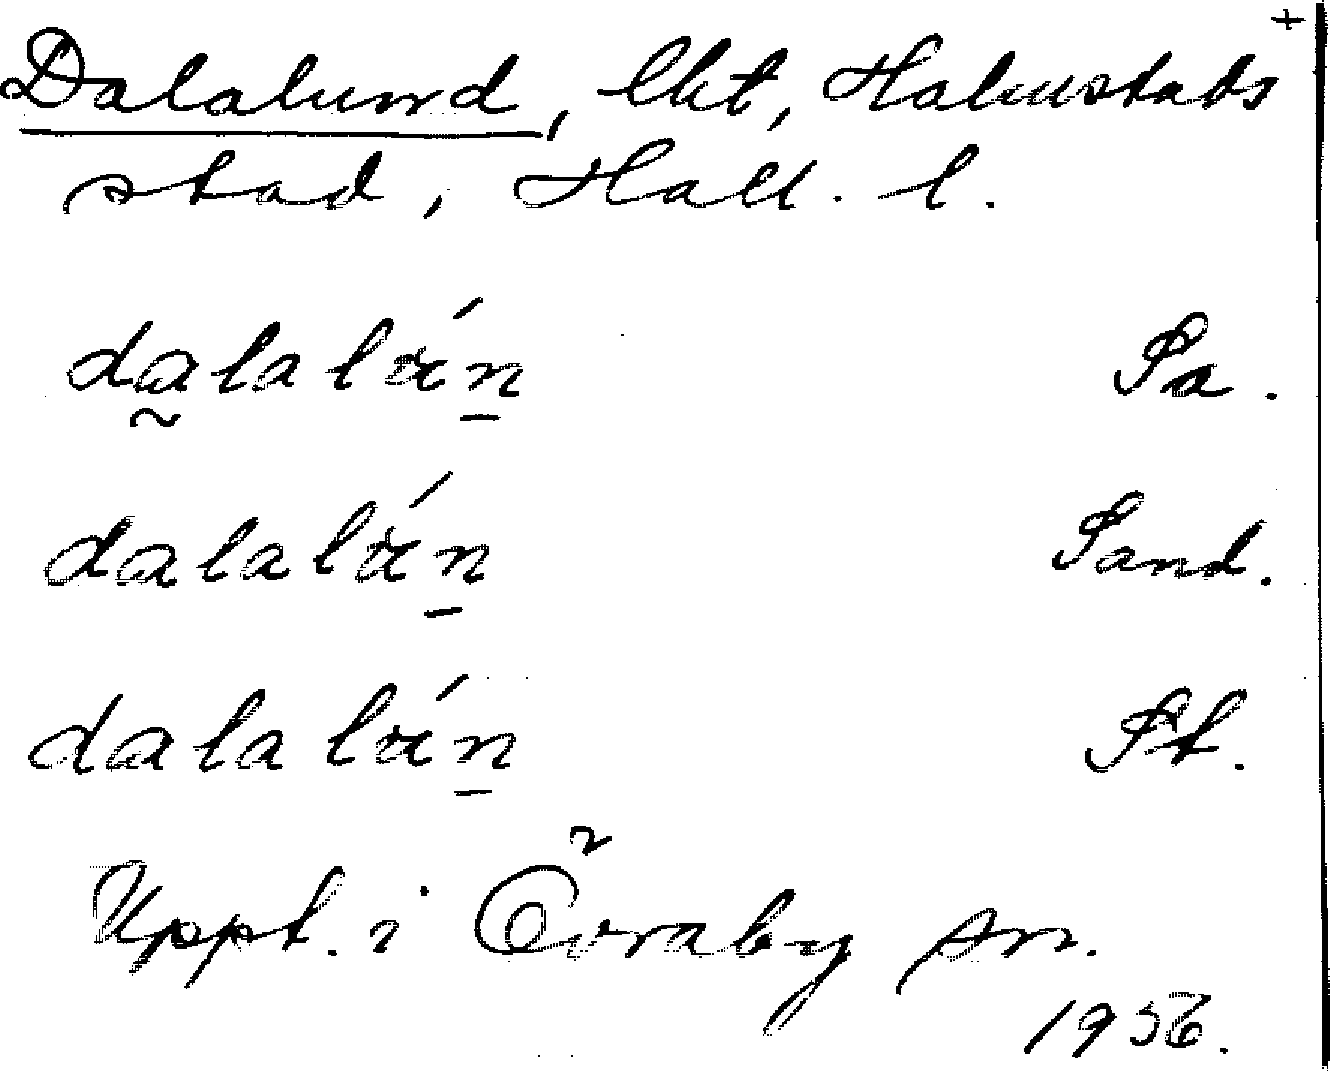 +
Dalalund, lht, Halmstads
stad, Hall. l.
dalalán Sa.
dalalán Sand.
dalalán St.
Uppt. i Övraby sn.
1956.